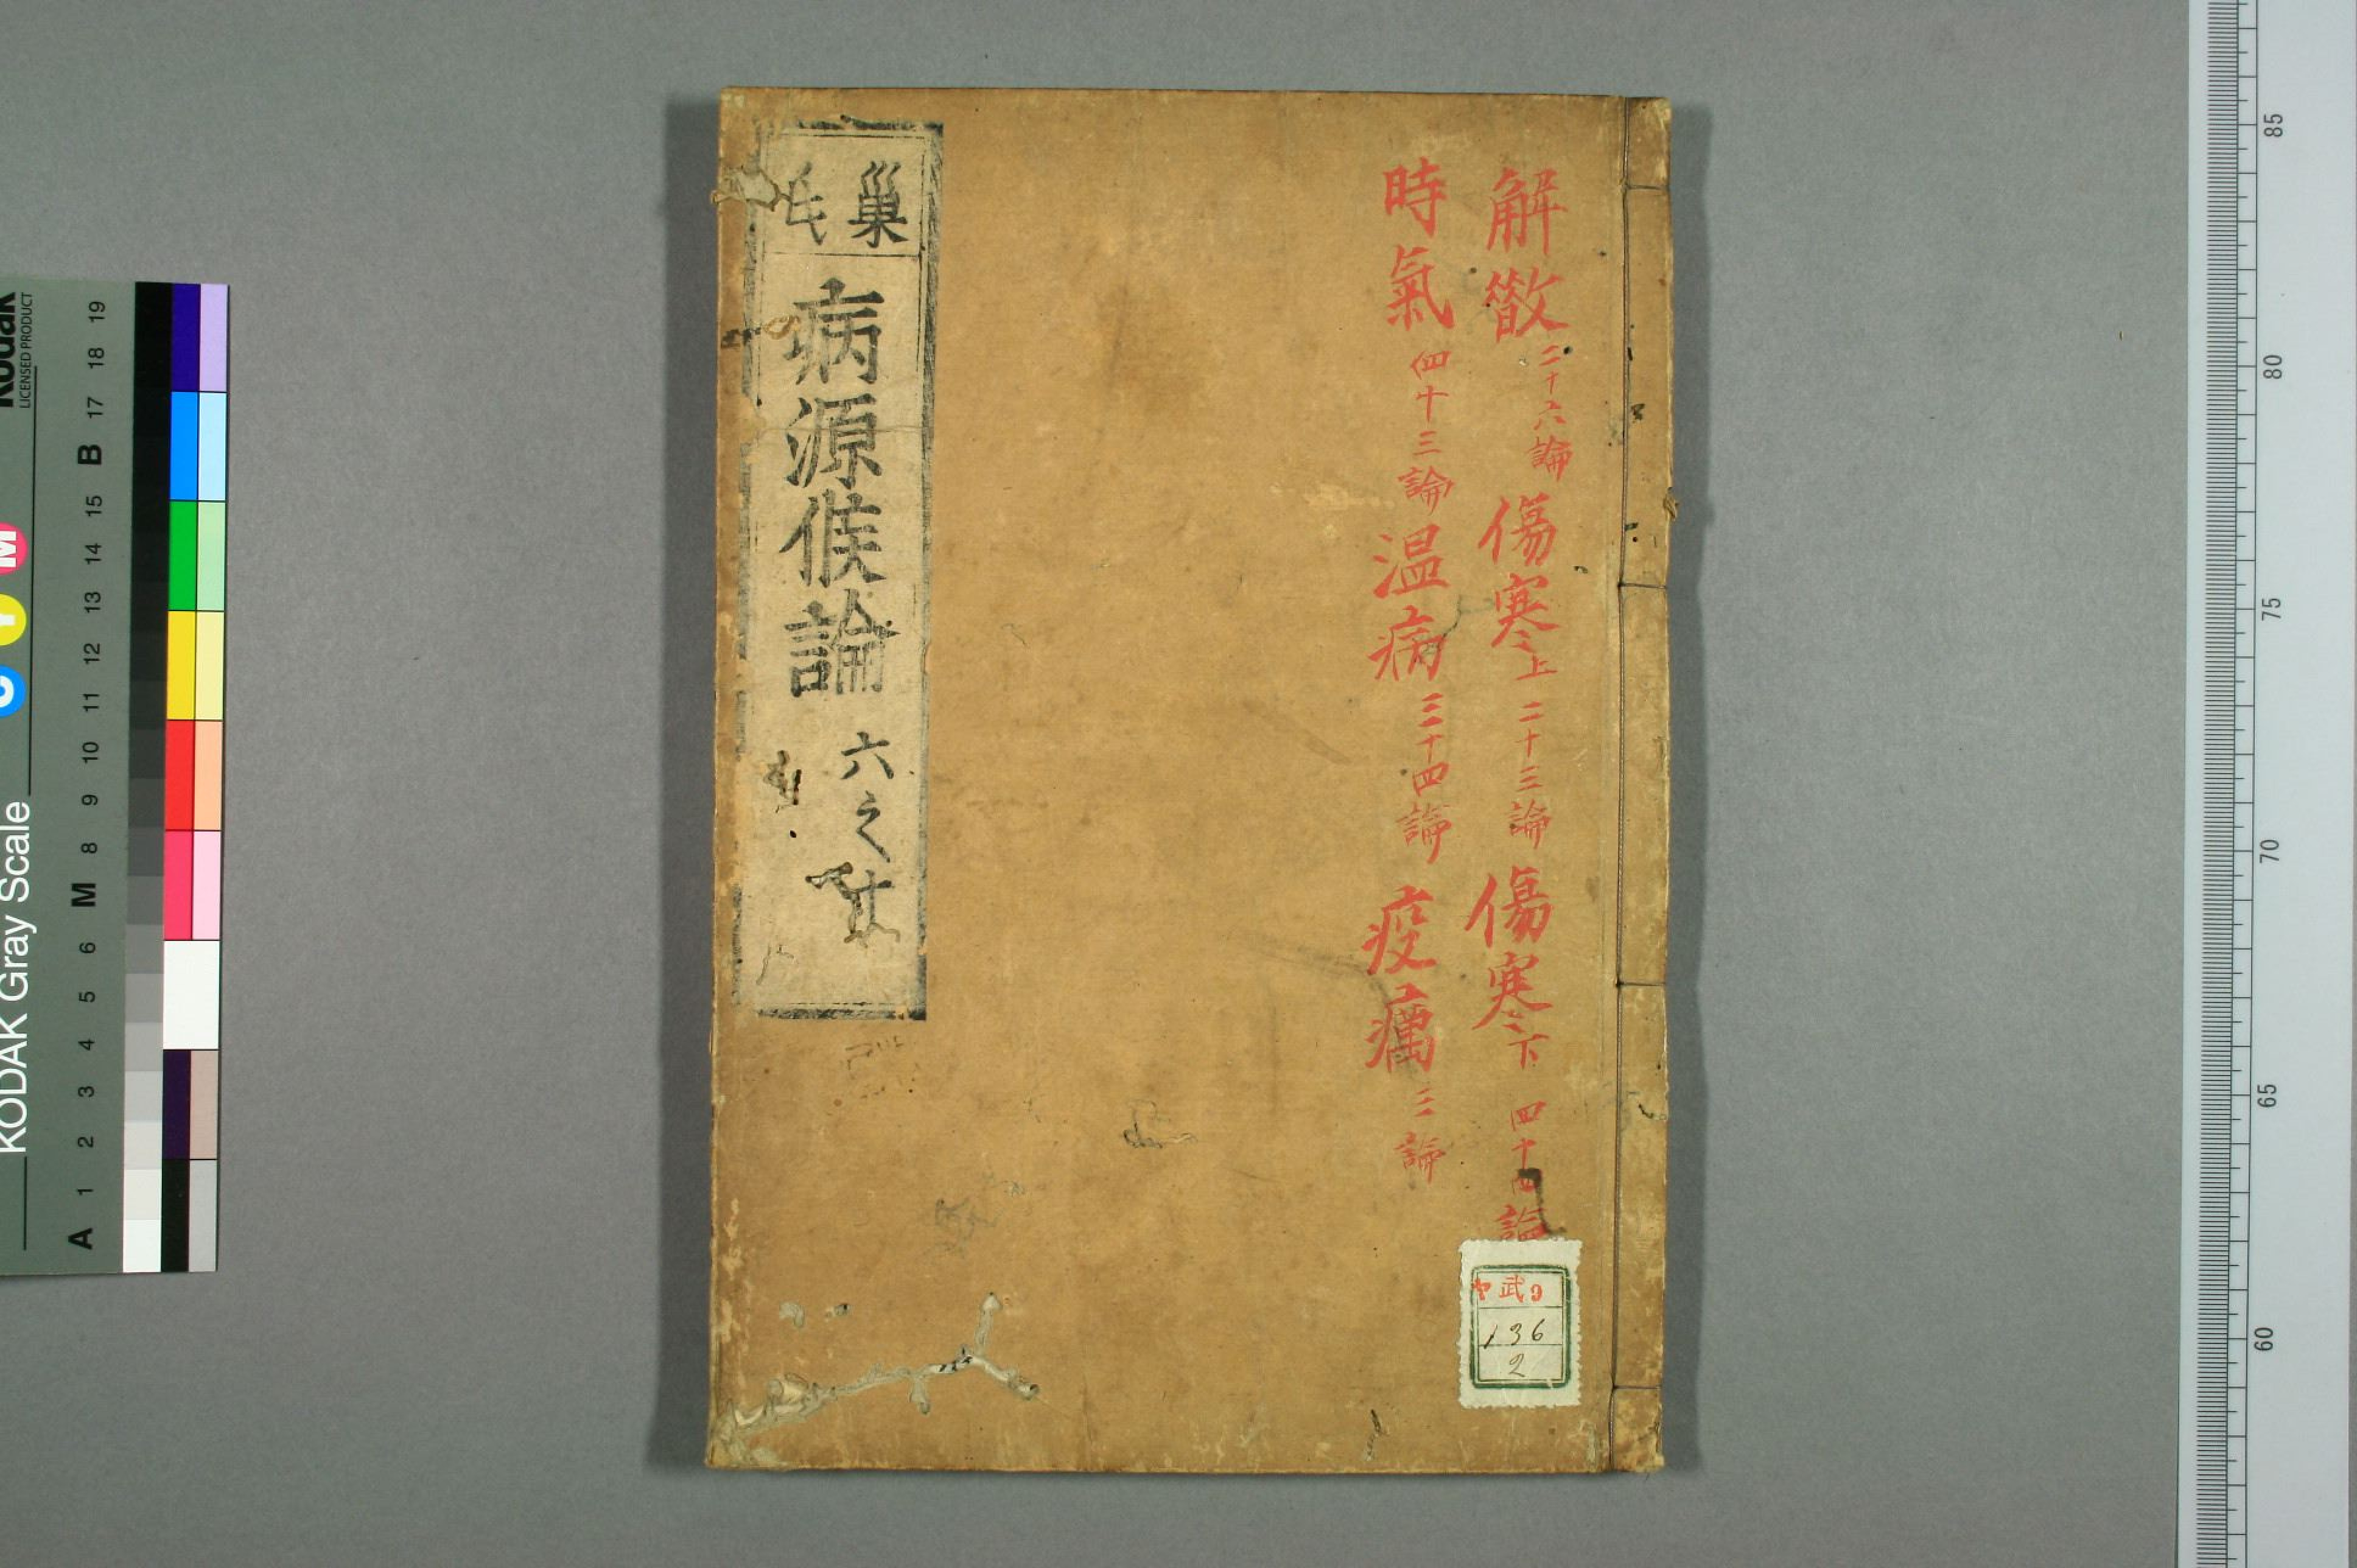 解散二十六論 傷寒上 二十三論 傷寒下 四十四論
時氣四十三論 温病三十四論 疫癘三論
巢氏
病源候論 六之
武
136
2
KODAK Gray Scale
Kodak
LICENSED PRODUCT
C Y M
A 1 2 3 4 5 6 M 8 9 10 11 12 13 14 15 B 17 18 19
85
80
75
70
65
60